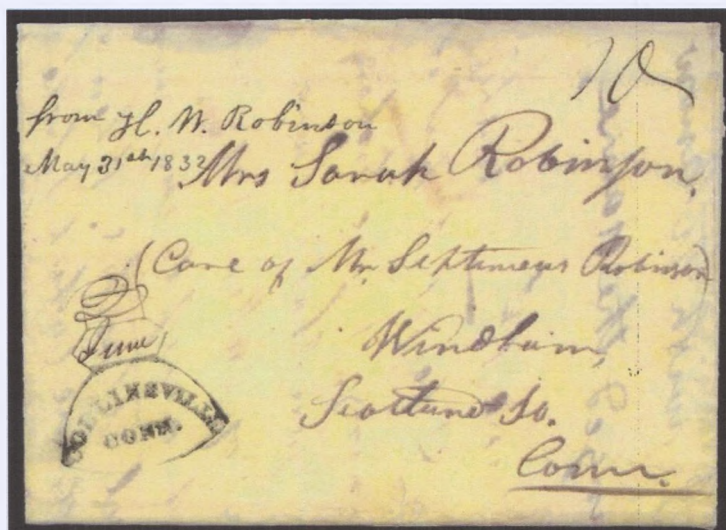 10
from H. W. Robinson
May 31st 1832
Mrs Sarah Robinson.
(Care of Mr Septimeus Robinson)
Windham,
Scotland So.
Conn.
2
June
COLLINSVILLE
CONN.